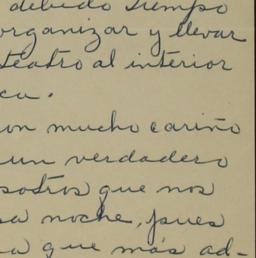 debido tiempo
organizar y llevar
teatro al interior
ca.
on mucho cariño
un verdadero
sotros que nos
sa noche, pues
a que más ad-